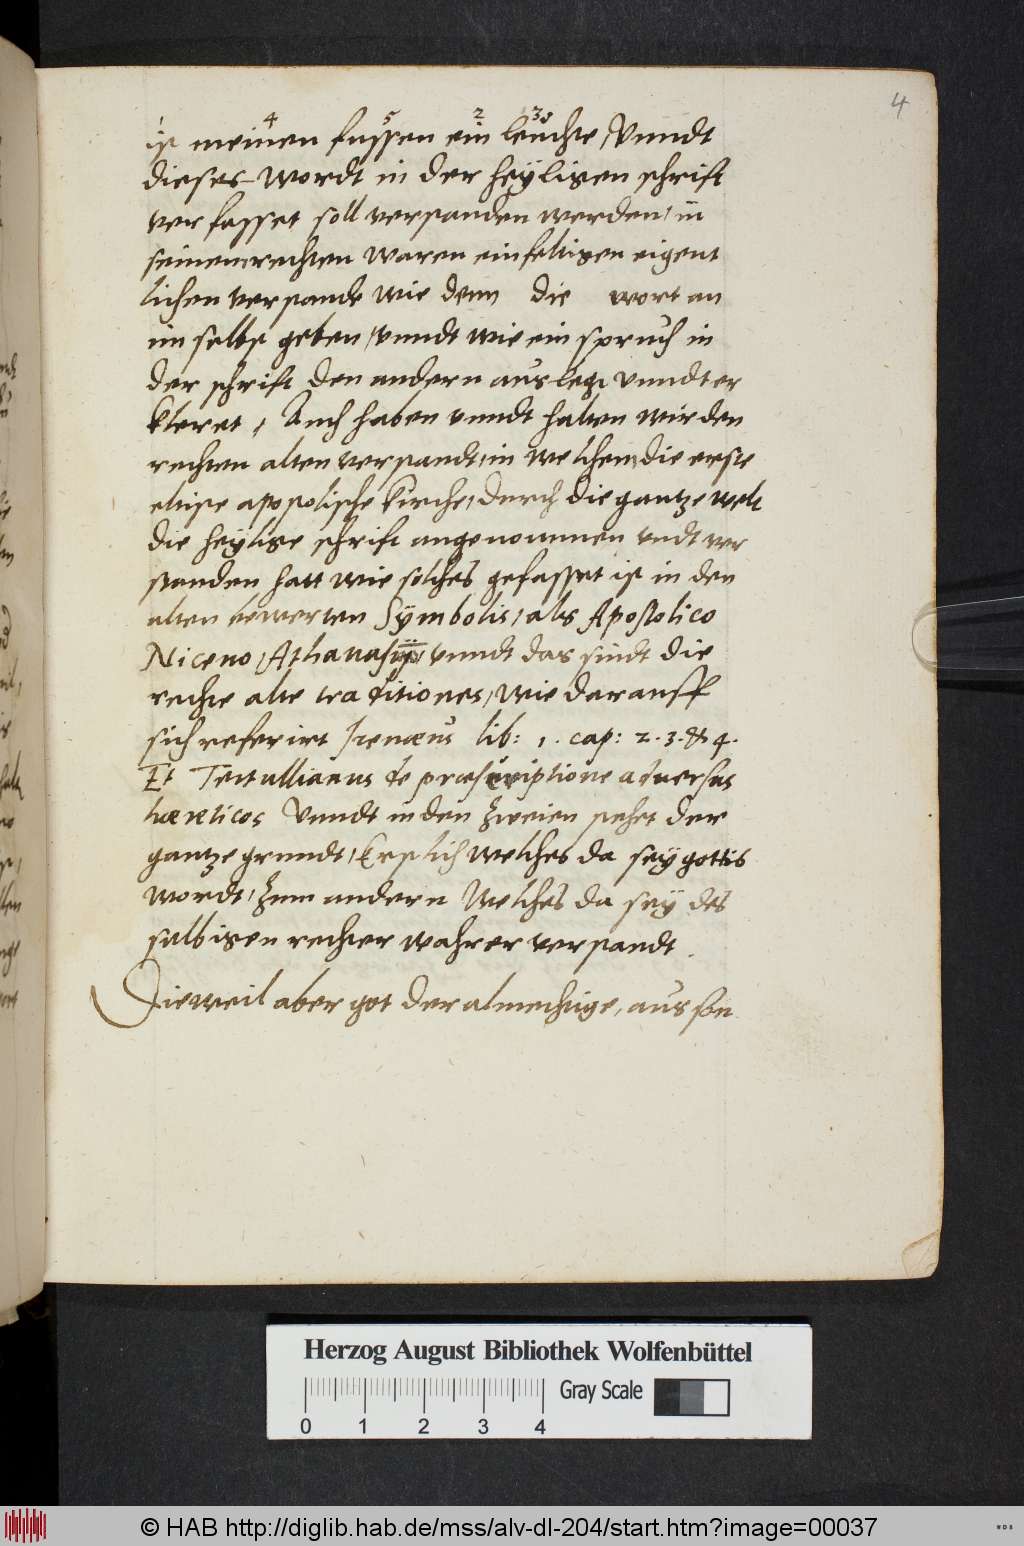 4
1 4 5 2 3
ist meinen fussen ein leuchte, Vnndt
dieses wordt in der heÿligen schrift
verfasset soll verstanden werden, in
seinem rechten waren einfeltigen eigent
lichen verstande wie denn die wort an
im selbst geben, vnndt wie ein spruch in
der schrift den andern auslegt vnndt er
kleret, Auch haben vnndt halten wir den
rechten alten verstandt, in welchem die erste
eltiste apostolische kirche, durch die gantze welt
die heÿlige schrift angenommen vndt ver
standen hatt wie solches gefasset ist in den
alten bewerten Sÿmbolis, als Apostolico
Niceno, Athanasij, vnndt das sindt die
rechte alte traditiones, wie darauff
sich referirt Irenæus lib: 1. cap: 2. 3. & 4.
Et Tertullianus de præscriptione aduersus
hæreticos Vnndt in den zweien stehet der
gantze grundt, Erstlich welches da seÿ gottis
wordt, zum andern Welches da seÿ des
selbigen rechter wahrer verstandt.
Dieweil aber got der almechtige, aus son
Herzog August Bibliothek Wolfenbüttel
Gray Scale
0 1 2 3 4
© HAB http://diglib.hab.de/mss/alv-dl-204/start.htm?image=00037